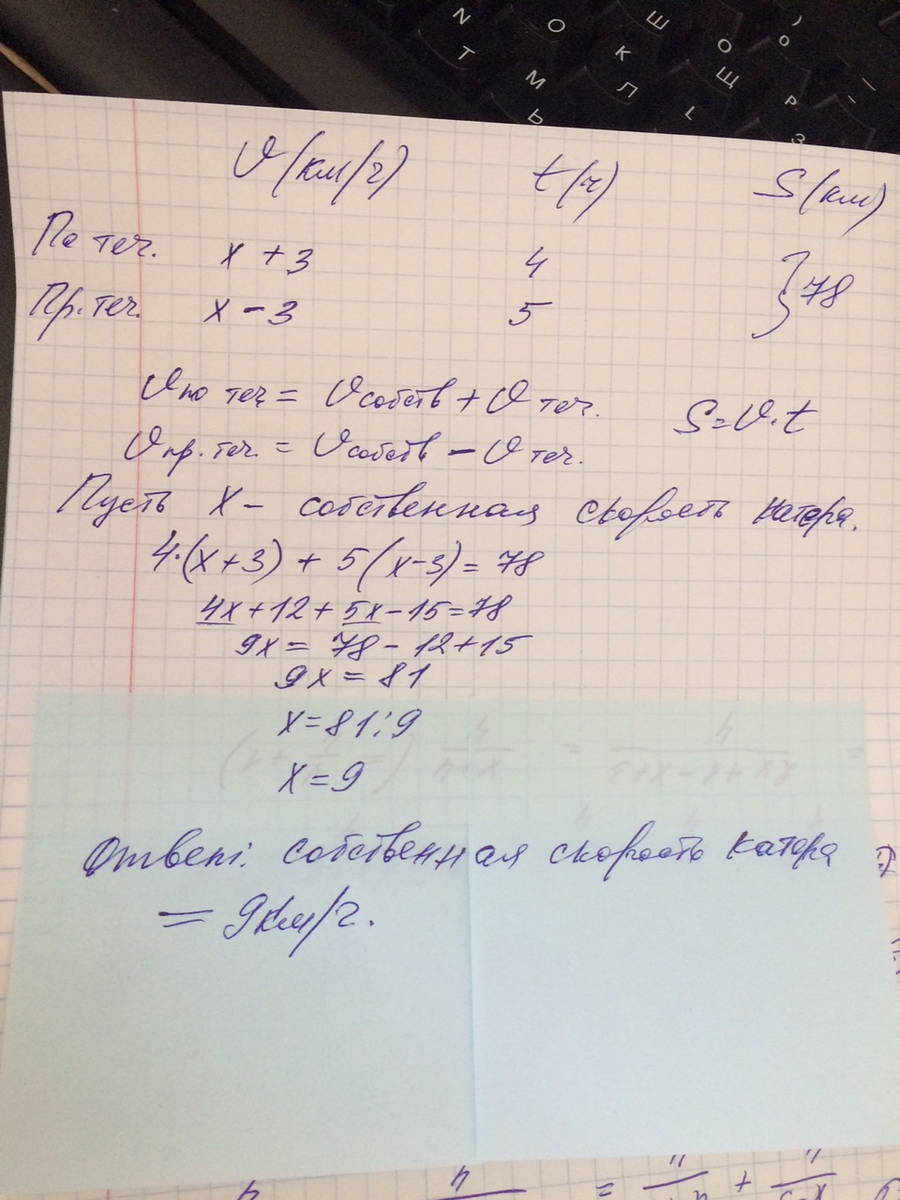 V (км/ч) t (ч) S (км)
По теч. x + 3 4
Пр. теч. x - 3 5 } 78
V по теч. = V собств + V теч.
S = V · t
V пр. теч. = V собств – V теч.
Пусть x – собственная скорость катера.
4·(x+3) + 5(x-3) = 78
4x + 12 + 5x - 15 = 78
9x = 78 - 12 + 15
9x = 81
x = 81 : 9
x = 9
Ответ: собственная скорость катера
= 9 км/ч.